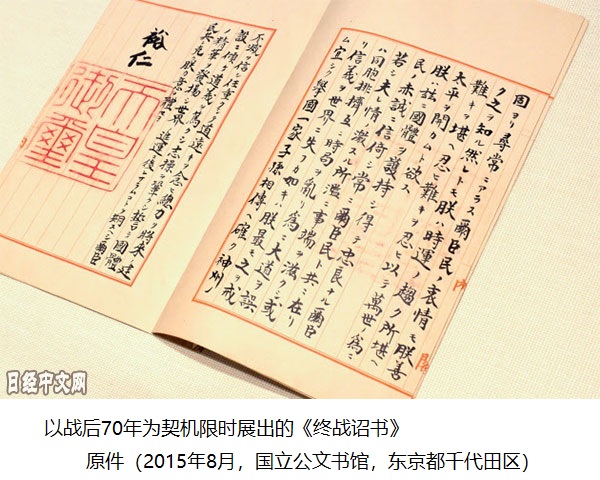 固ヨリ尋常ニアラス爾臣民ノ衷情モ朕善
ク之ヲ知ル然レトモ朕ハ時運ノ趨ク所堪ヘ
難キヲ堪ヘ忍ヒ難キヲ忍ヒ以テ萬世ノ爲ニ
太平ヲ開カムト欲ス
朕ハ茲ニ國體ヲ護持シ得テ忠良ナル爾臣
民ノ赤誠ニ信倚シ常ニ爾臣民ト共ニ在リ
若シ夫レ情ノ激スル所濫ニ事端ヲ滋クシ或
ハ同胞排擠互ニ時局ヲ亂リ爲ニ大道ヲ誤
リ信義ヲ世界ニ失フカ如キハ朕最モ之ヲ戒
ム宜シク擧國一家子孫相傳ヘ確ク神州ノ
内閣
不滅ヲ信シ任重クシテ道遠キヲ念ヒ總力ヲ將來ノ建
設ニ傾ケ道義ヲ篤クシ志操ヲ鞏クシ誓テ國體
ノ精華ヲ發揚シ世界ノ進運ニ後レサラムコトヲ期スヘシ爾臣
民其レ克ク朕カ意ヲ體セヨ
裕仁
天皇
御璽
日经中文网
以战后70年为契机限时展出的《终战诏书》
原件（2015年8月，国立公文书馆，东京都千代田区）